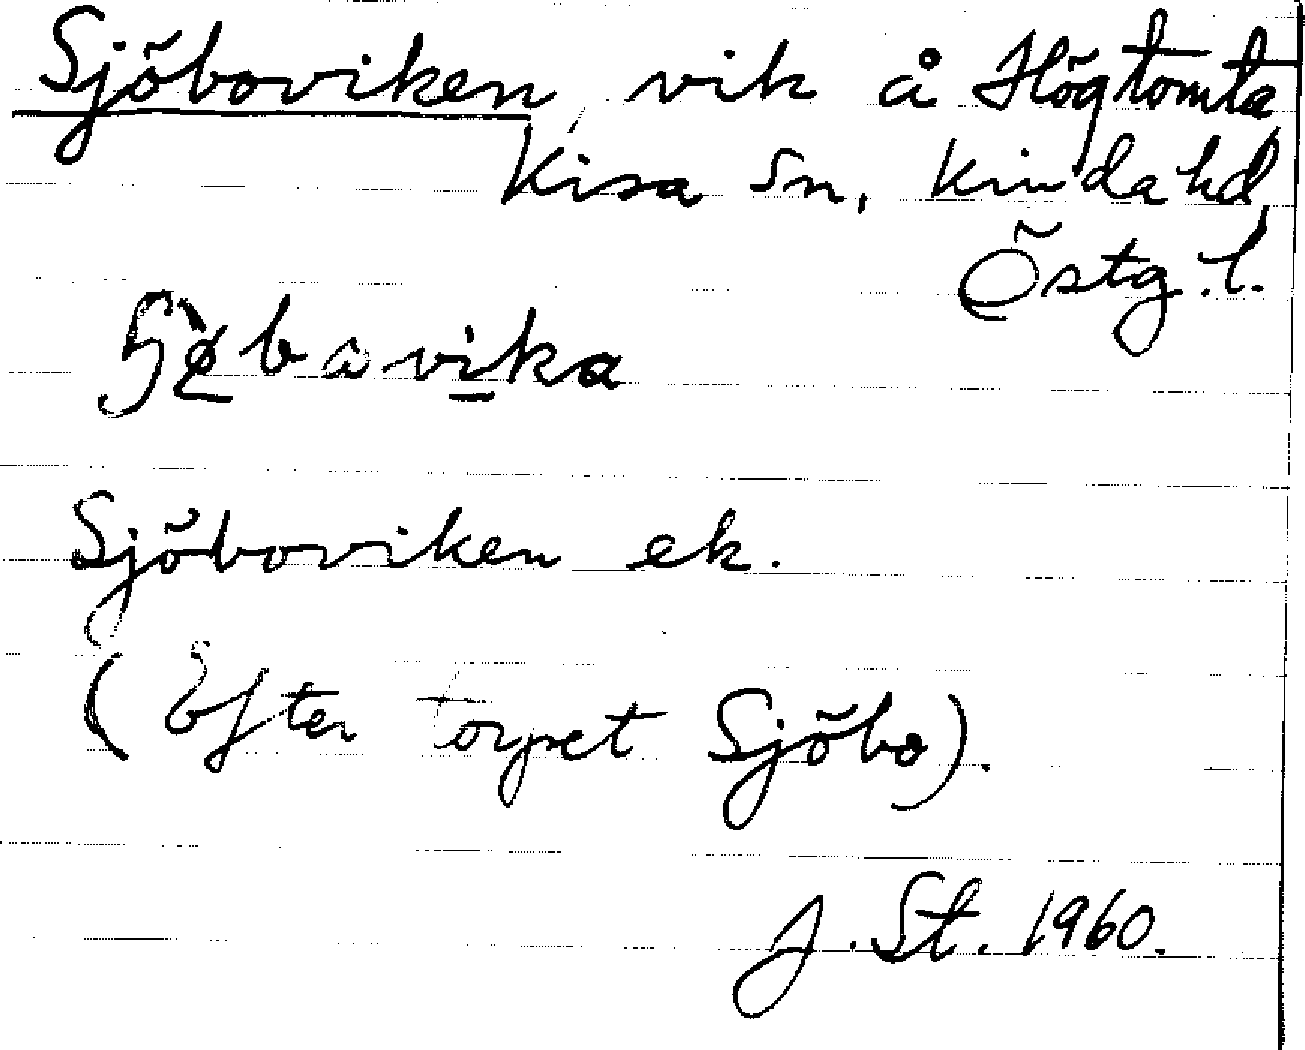 Sjöboviken vik å Högtomta
Kisa sn, Kinda hd
Östg. l.
Sjöboviken ek.
(Efter torpet Sjöbo).
J. St. 1960.